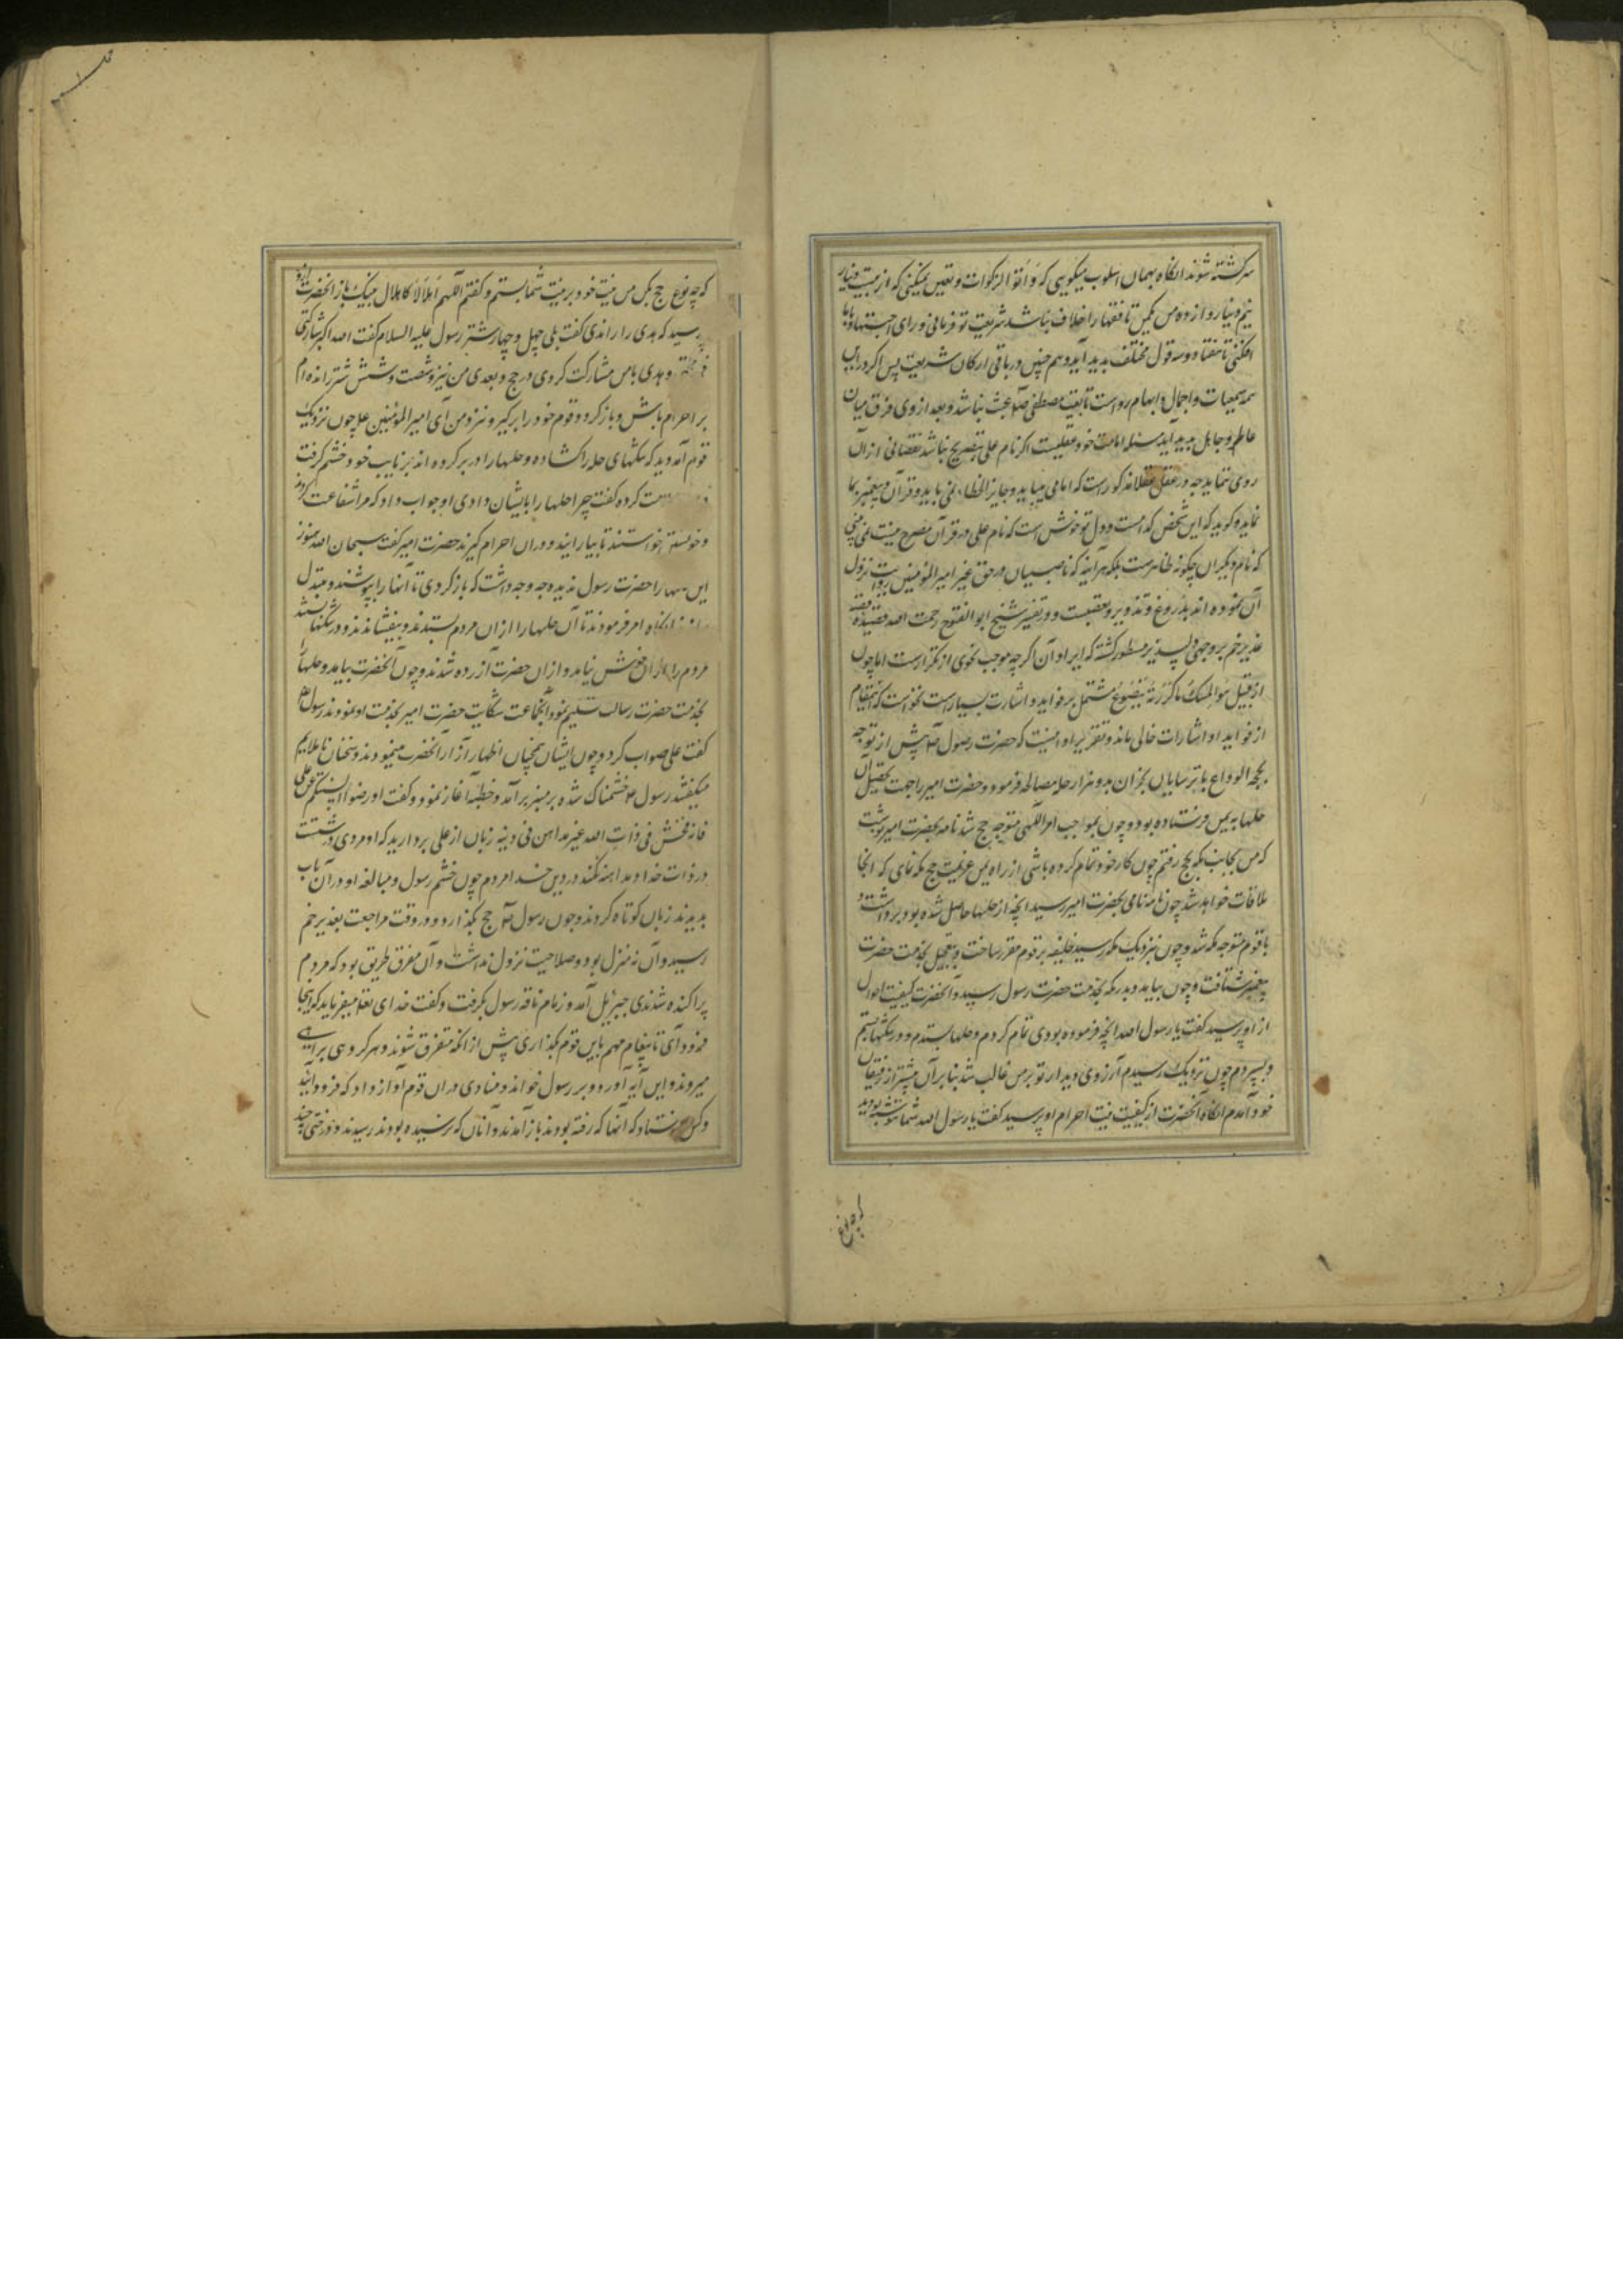 سرکشته شوند انکاه بهمان اسلوب میکویی که وَ آتوا الزکوات و تعیین نمیکنی که از بیست دینار
نیم دینار و از ده من یکمن تا فقها را خلاف نباشد شریعت تو فرمانی و رای اجتهاد باما
افکنی تا هفتاد و سه قول مختلف بدید آید و هم چنین در باقی ارکان شریعت پس اکر در این
همه سمعیات و اجمال و ابهام رواست تا بعثت مصطفی صلعم عبث نباشد و بعد از وی فرق میان
عالم و جاهل بدید آید مسئله امامت خود عقلیست اکر نام علی بتصریح نباشد نقصانی از آن
روی ننماید چه در عقل عقلا مذکور است که امامی میباید و جایز الخطاء نمی باید و قرآن و پیغمبر بما
نماید و کوید که این شخص کدامست و دل تو خوش است که نام علی در قرآن مصرح نیست نمی بینی
که نام دیکران چکونه ظاهرست بلکه هر آینه که ناصبیان در حق غیر امیر المؤمنین روایت نزول
آن نموده اند بدروغ و تزویر و تعصبت و در تفسیر شیخ ابو الفتوح رحمت الله قصیده قصه
غدیر خم بر وجهی دلپذیر مسطور کشته که ایراد آن اکر چه موجب نحوی از تکرار است اما چون
از قبیل هو المسک ما کررته یتضوع مشتمل بر فواید و اشارت بسیار است نخواست که این مقام
از فواید او اشارات خالی ماند و تقریر او اینست که حضرت رسول صلعم پیش از توجه
بحجه الوداع با ترسایان نجران بدو هزار حله مصالحه فرمود و حضرت امیر را جهت تحصیل آن
حلها به یمن فرستاده بود و چون بموجب امر آلهی متوجه حج شد نامه بحضرت امیر نوشت
که من بجانب مکه بحج رفتم چون کار خود تمام کرده باشی از راه یمن عزیمت حج مکه نمای که آنجا
ملاقات خواهد شد چون نامه نامی بحضرت امیر رسید انچه از حلها حاصل شده بود برداشت و
با قوم متوجه مکه شد و چون بنزدیک مکه رسید خلیفه بر قوم مقرر ساخت و بتعجیل بخدمت حضرت
پیغمبر شتافت و چون بیامد و بدر مکه بخدمت حضرت رسول رسید و آنحضرت کیفیت احوال
از او پرسید کفت یا رسول الله انچه فرموده بودی تمام کردم و حلها بستدم و در تنکها بستم
و بسپردم چون نزدیک رسیدم آرزوی دیدار تو بر من غالب شد بنا بر آن پیشتر از رفیقان
خود آمدم انکاه آنحضرت از کیفیت نیت احرام او پرسید کفت یا رسول الله شما ننوشته بودید
که چه نوع حج بکن من نیت خود بر نیت شما بستم و کفتم اللهم اهلالا کاهلال نبیک باز آنحضرت ازو
پرسید که هدی را راندی کفت بلی چهل و چهار شتر رسول علیه السلام کفت الله اکبر شارکتنی
و هدی با من مشارکت کردی در حج و بعدی من نیز و شصت و شش شتر رانده ام
بر احرام باش و باز کرد و قوم خود را بر کیر و نزد من آی امیر المؤمنین علی چون نزدیک
قوم آمد دید که تنکهای حله را کشاده و حلها را در بر کرده اند بر نایب خود خشم کرفت
کرده کفت چرا حلها را بایشان دادی او جواب داد که مرا شفاعت کردند
و خواستند تا بیارایند و در آن احرام کیرند حضرت امیر کفت سبحان الله هنوز
این را حضرت رسول ندیده چه وجه داشت که باز کردی تا آنها را بپوشند و مبتذل
انکاه امر فرمودند تا آن حلها را از آن مردم بستدند و بیفشاندند و در تنکها بستند
مردم را از آن خوش نیامد و از آن حضرت آزرده شدند و چون آنحضرت بیامد و حلها
بخدمت حضرت رسالت تسلیم نمود آنجماعت شکایت حضرت امیر بخدمت او نمودند رسول
کفت علی صواب کرد و چون ایشان همچنان اظهار آزار آنحضرت مینمودند و سخنان ناملایم
میکفتند رسول خشمناک شده بر منبر بر آمد و خطبه آغاز نمود و کفت ارفعوا السنتکم عن علی
فانه خشن فی ذات الله غیر مداهن فی دینه زبان از علی بردارید که او مردی درشتست
در ذات خدا و مداهنه نکند در دین خدا مردم چون خشم رسول و مبالغه او در آن باب
بدیدند زبان کوتاه کردند و چون رسول صلعم حج بکذارد و در وقت مراجعت بغدیر خم
رسید و آن نه منزل بود و صلاحیت نزول نداشت و آن مفرق طریق بود که مردم
پراکنده شدندی جبرئیل آمد و زمام ناقه رسول بکرفت و کفت خدای تعا میفرماید که اینجا
فرود آی تا پیغام مهم باین قوم بکذاری پیش از آنکه متفرق شوند و هر کروهی براهی
میروند و این آیه آورد و بر رسول خواند و منادی در آن قوم آواز داد که فرود آیید
و کس فرستاد که آنها که رفته بودند باز آمدند و آنان که نرسیده بودند رسیدند و درختی چند